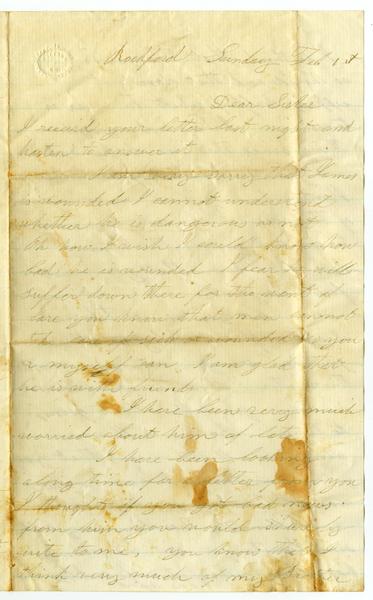 Rockford Sunday Feb 1st
Dear Sister
I receid your letter last night and
hasten to answer it
I am very sorry that James
is wounded I cannot understand
whether he is dangerous or not
Oh how I wish I could know how
bad he is wounded I fear he will
suffer down there for the want of
care you know that men cannot
care sick wounded as you
or myself can I am glad that
he is with friends
I have been very much
worried about him of late
I have been looking
along time for a letter from you
I thought if you got bad news
from him you would surely
write to me, you know that I
think very much of my Brother